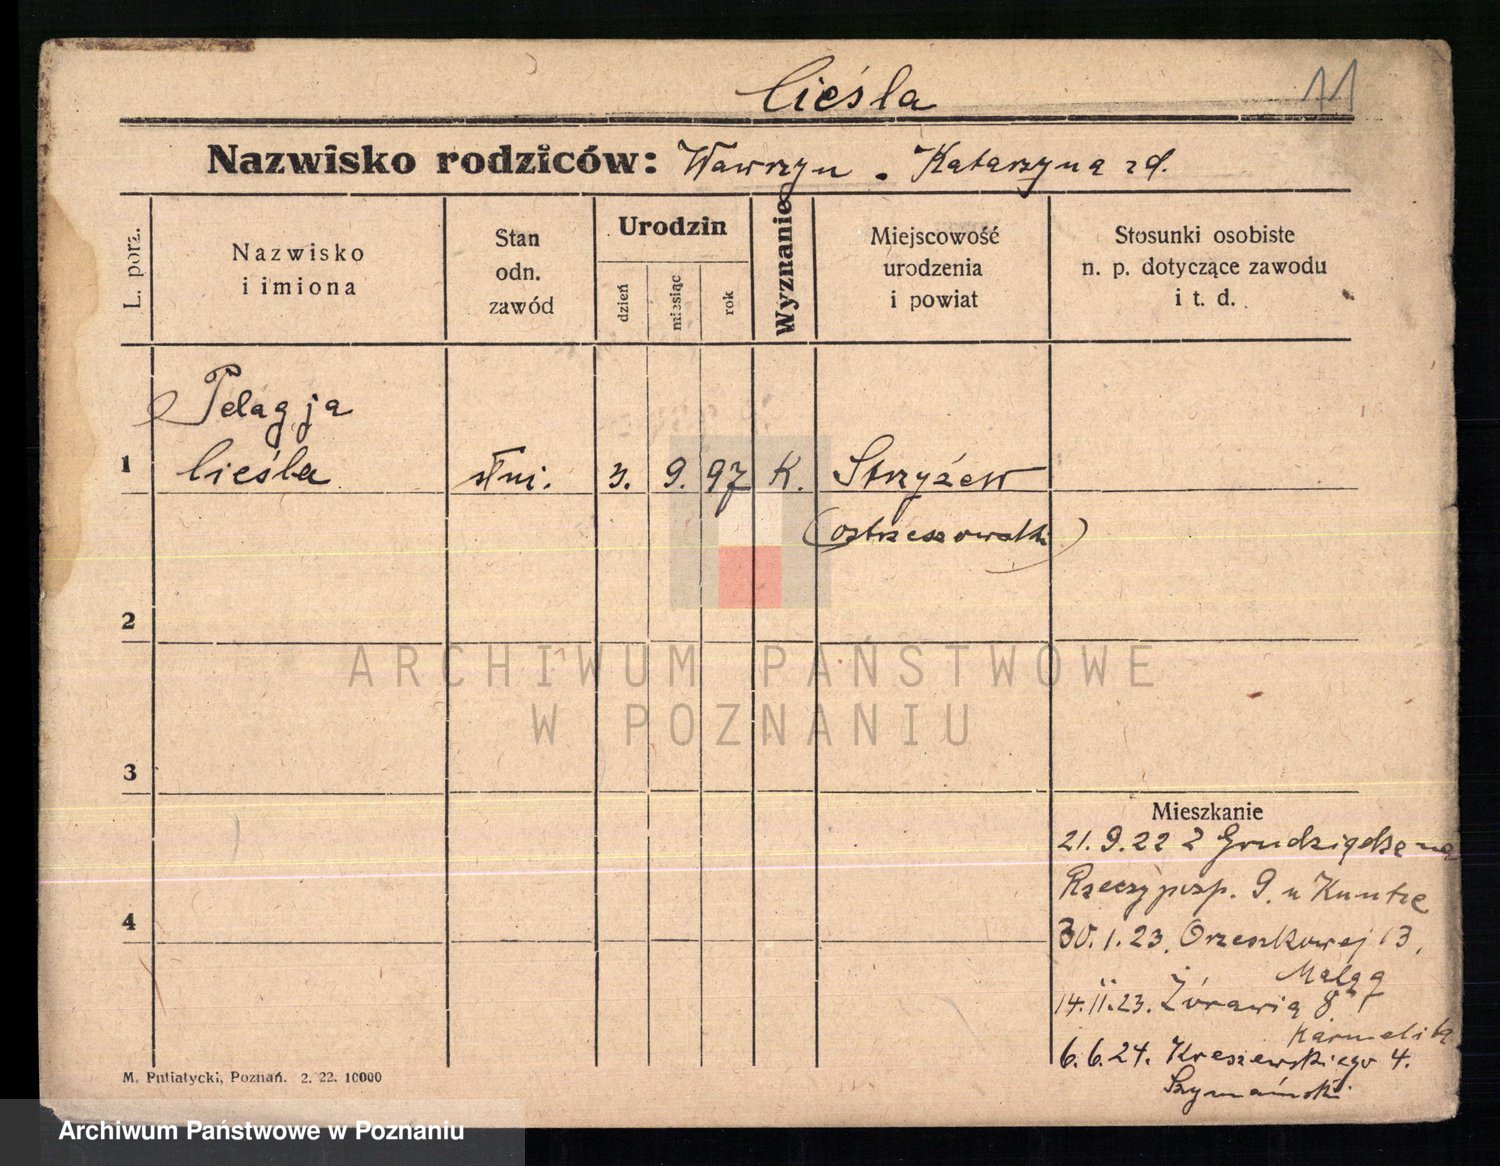 Cieśla
11
Nazwisko rodziców: Wawrzyn. Katarzyna zd.
L. porz.
Nazwisko
i imiona
Stan
odn.
zawód
Urodzin
dzień
miesiąc
rok
Wyznanie
Miejscowość
urodzenia
i powiat
Stosunki osobiste
n. p. dotyczące zawodu
i t. d.
Pelagja
1 Cieśla służ. 3. 9. 97 K. Strzyżew
(ostrzeszowski)
2
3
4
Mieszkanie
21.9.22 z Grudziądza na
Rzeczyposp. 9. u Kuntze
30.1.23. Orzeszkowej 13,
14.II.23. Żórawia 8
6.6.24. Kraszewskiego 4.
Szymański
M. Putiatycki, Poznań. 2. 22. 10000
ARCHIWUM PAŃSTWOWE
W POZNANIU
Archiwum Państwowe w Poznaniu